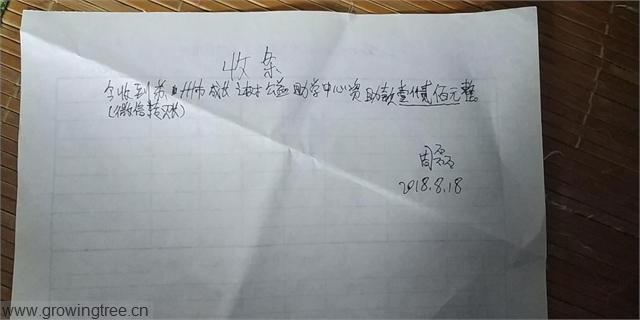 收条
今收到苏州市成长之树公益助学中心资助款壹仟贰佰元整。
(微信转账)
周磊
2018.8.18
www.growingtree.cn